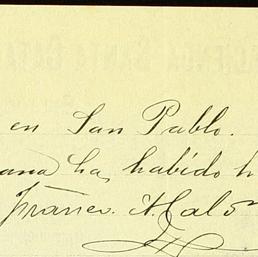 en San Pablo.
ana ha habido h
Franco. A. Caló